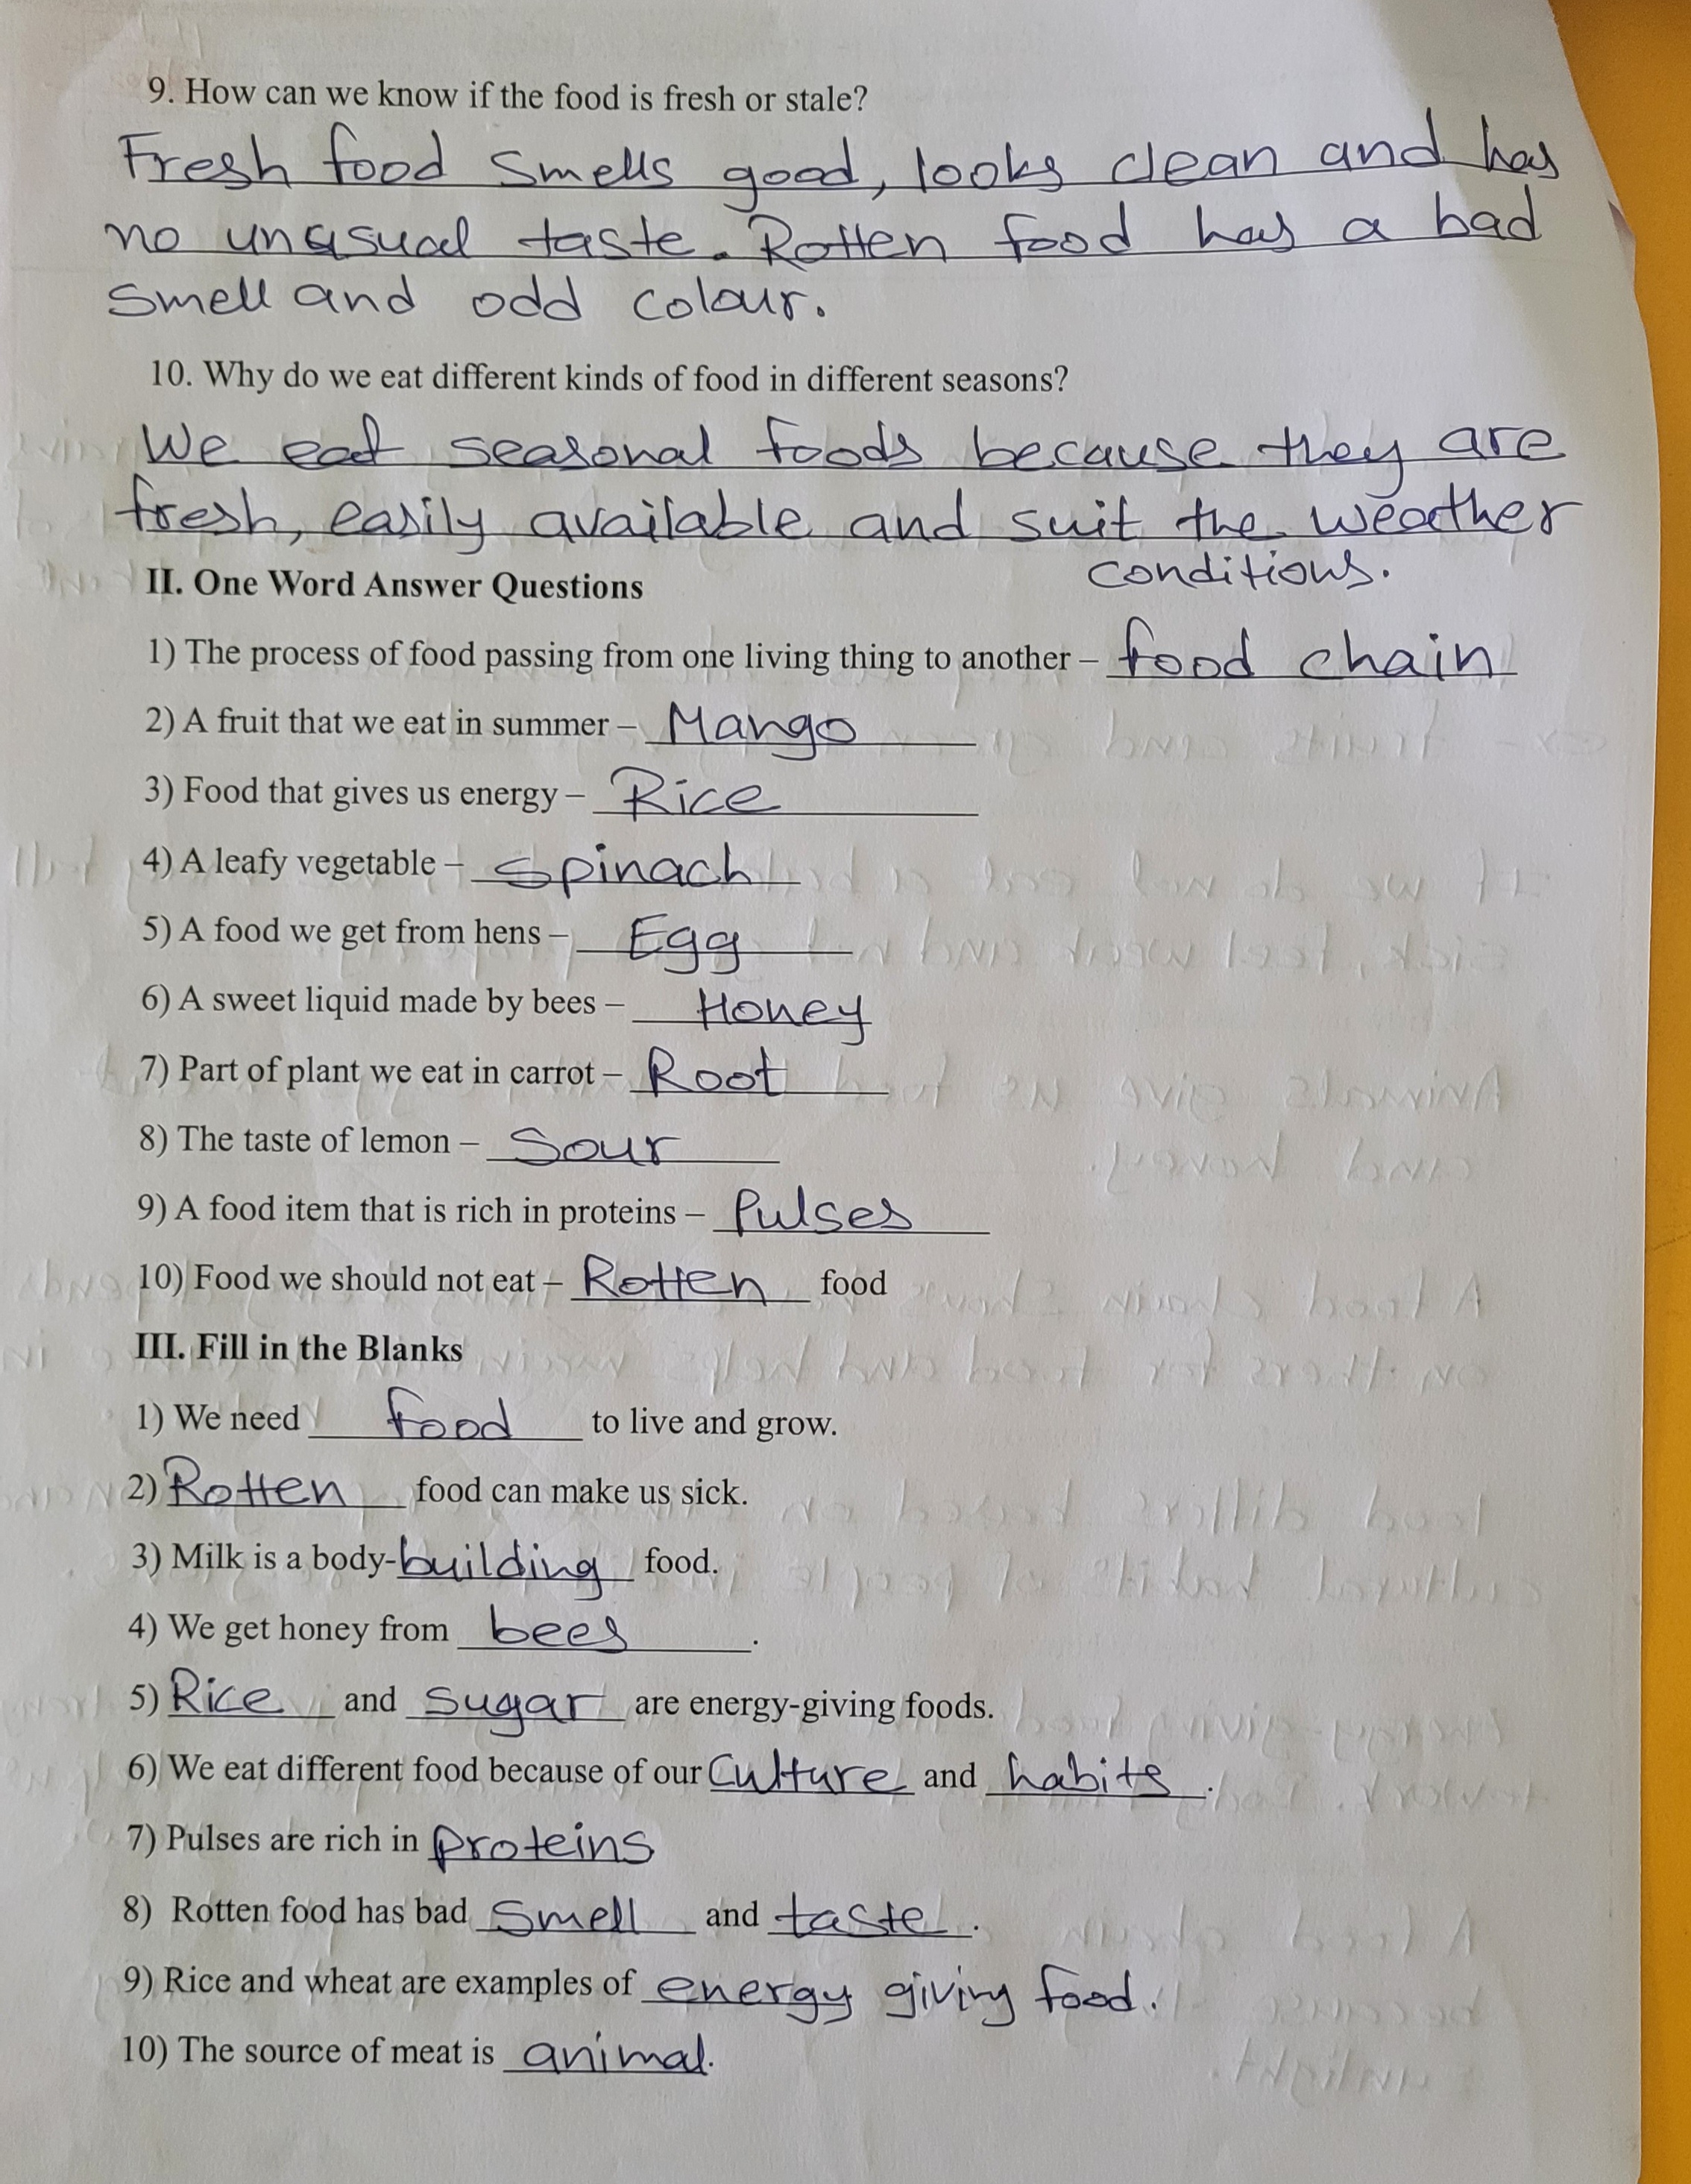 9. How can we know if the food is fresh or stale?
Fresh food smells good, looks clean and has
no unusual taste. Rotten food has a bad
smell and odd colour.
10. Why do we eat different kinds of food in different seasons?
We eat seasonal foods because they are
fresh, easily available and suit the weather
conditions.
II. One Word Answer Questions
1) The process of food passing from one living thing to another – food chain
2) A fruit that we eat in summer – Mango
3) Food that gives us energy – Rice
4) A leafy vegetable – Spinach
5) A food we get from hens – Egg
6) A sweet liquid made by bees – Honey
7) Part of plant we eat in carrot – Root
8) The taste of lemon – Sour
9) A food item that is rich in proteins – Pulses
10) Food we should not eat – Rotten food
III. Fill in the Blanks
1) We need food to live and grow.
2) Rotten food can make us sick.
3) Milk is a body-building food.
4) We get honey from bees.
5) Rice and sugar are energy-giving foods.
6) We eat different food because of our Culture and habits.
7) Pulses are rich in proteins
8) Rotten food has bad smell and taste.
9) Rice and wheat are examples of energy giving food.
10) The source of meat is animal.